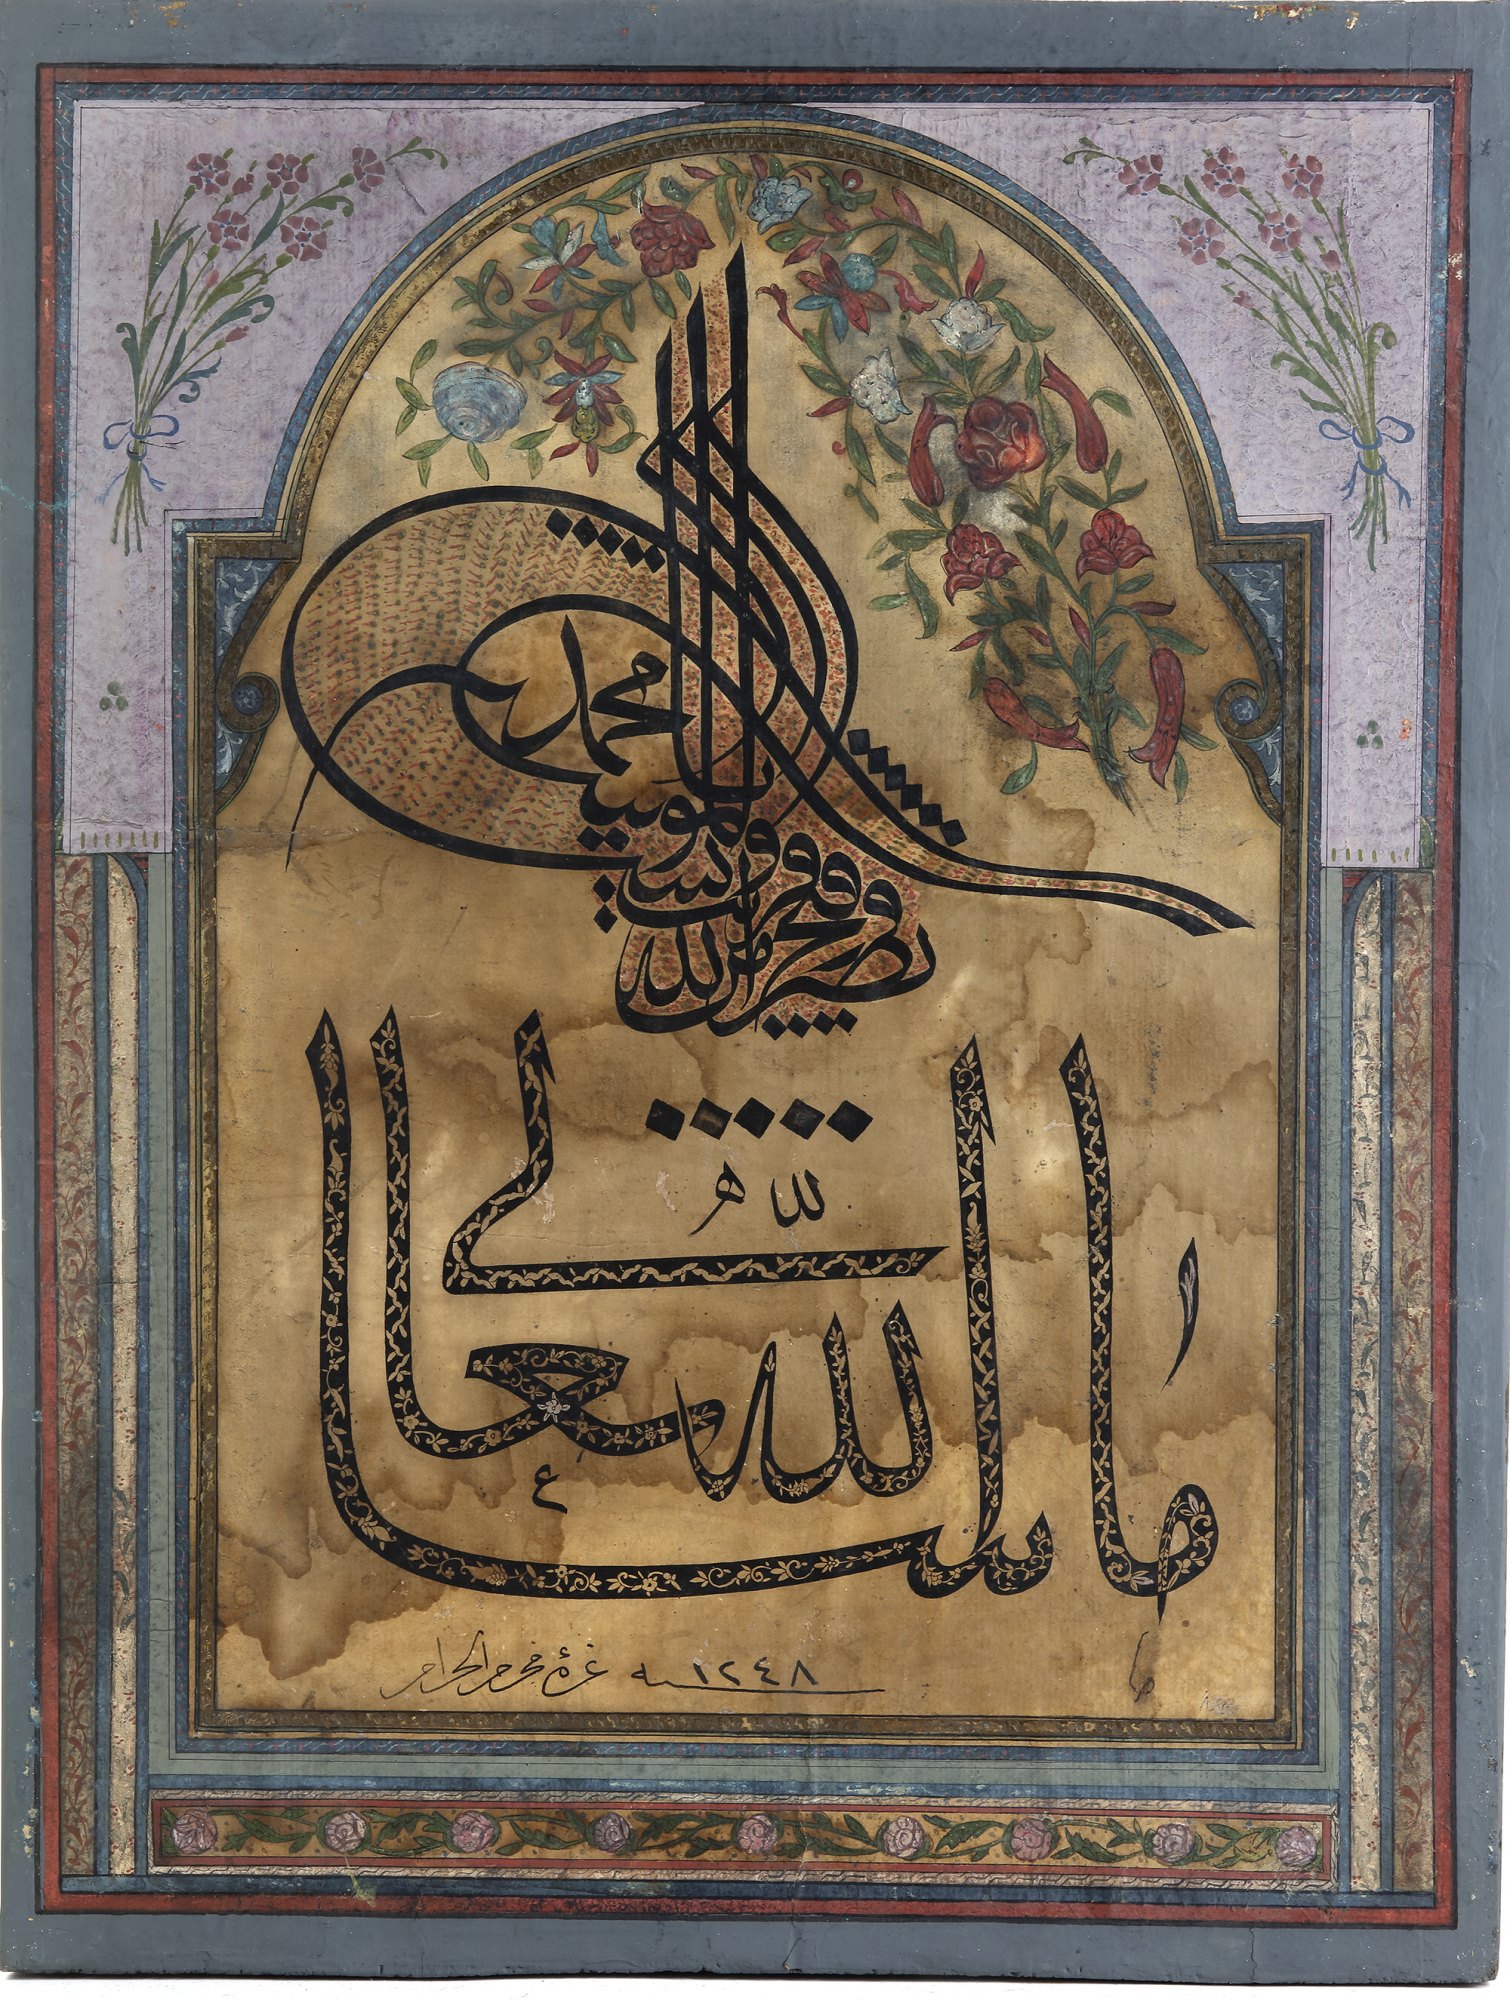 نصر من الله وفتح قريب وبشر المؤمنين يا محمد
ما شا الله تعالى
سنه ١٢٤٨ غرة محرم الحرام